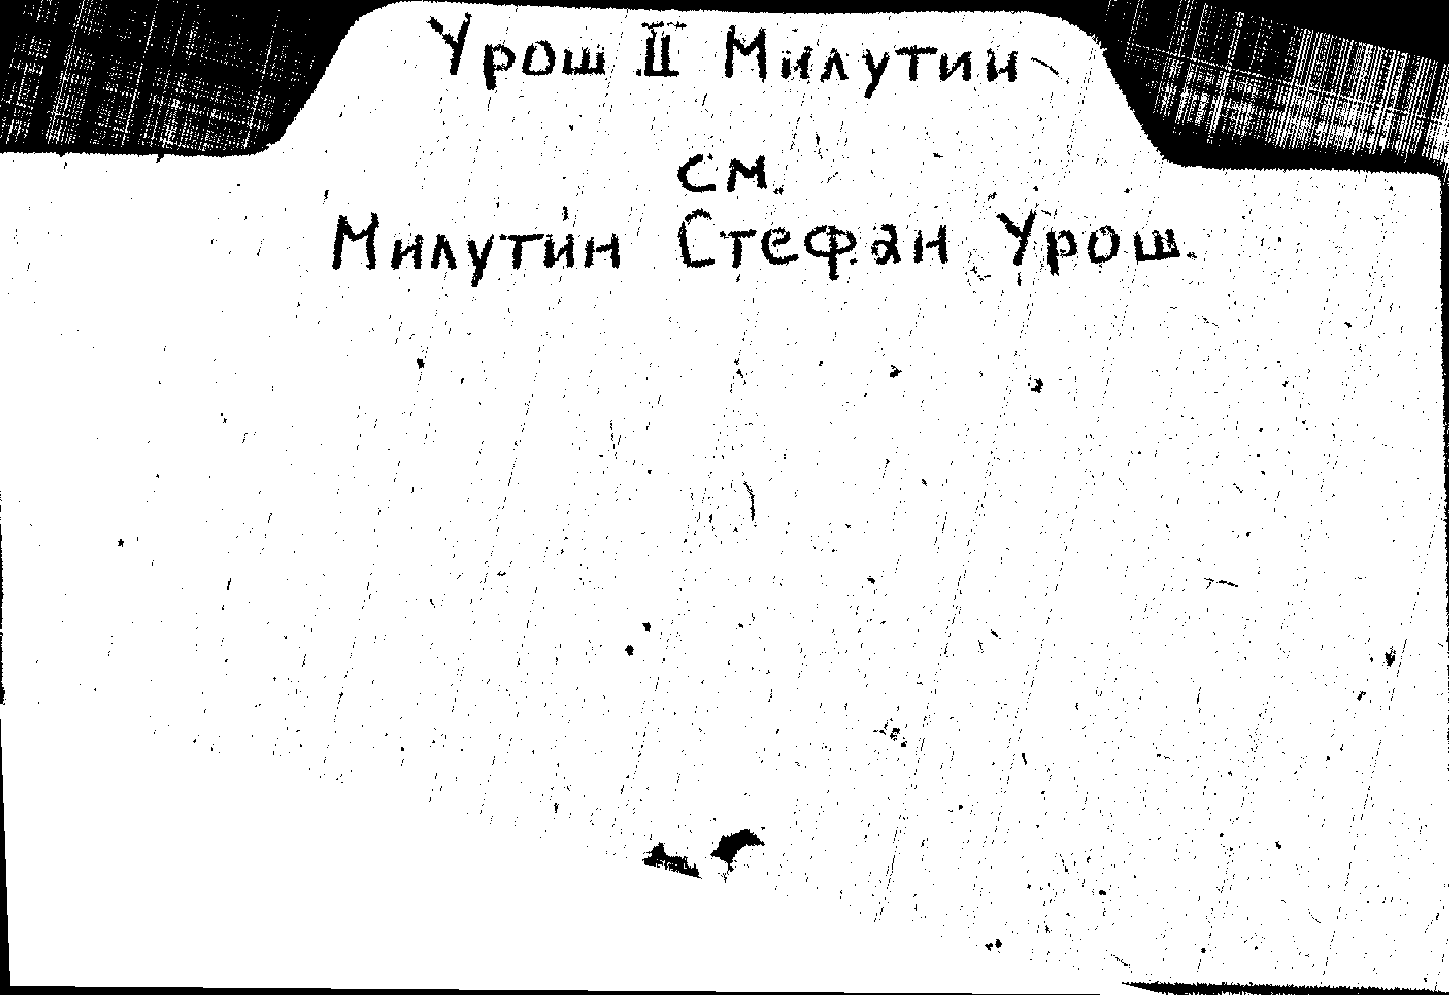 Урош II Милутин
см.
Милутин Стефан Урош.